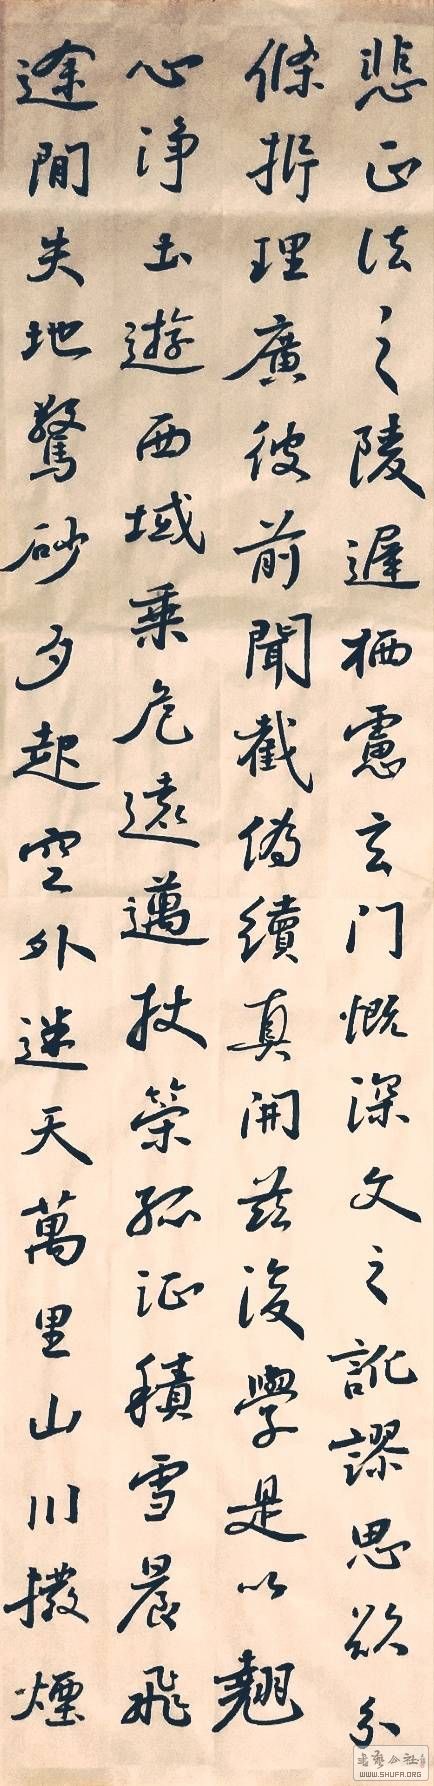 悲正法之陵遲栖慮玄门慨深文之訛謬思欲分
條析理廣彼前聞截偽續真開茲後學是以翹
心淨土遊西域乗危遠邁杖策孤征積雪晨飛
途間失地驚砂夕起空外迷天萬里山川撥煙
书艺公社
WWW.SHUFA.ORG